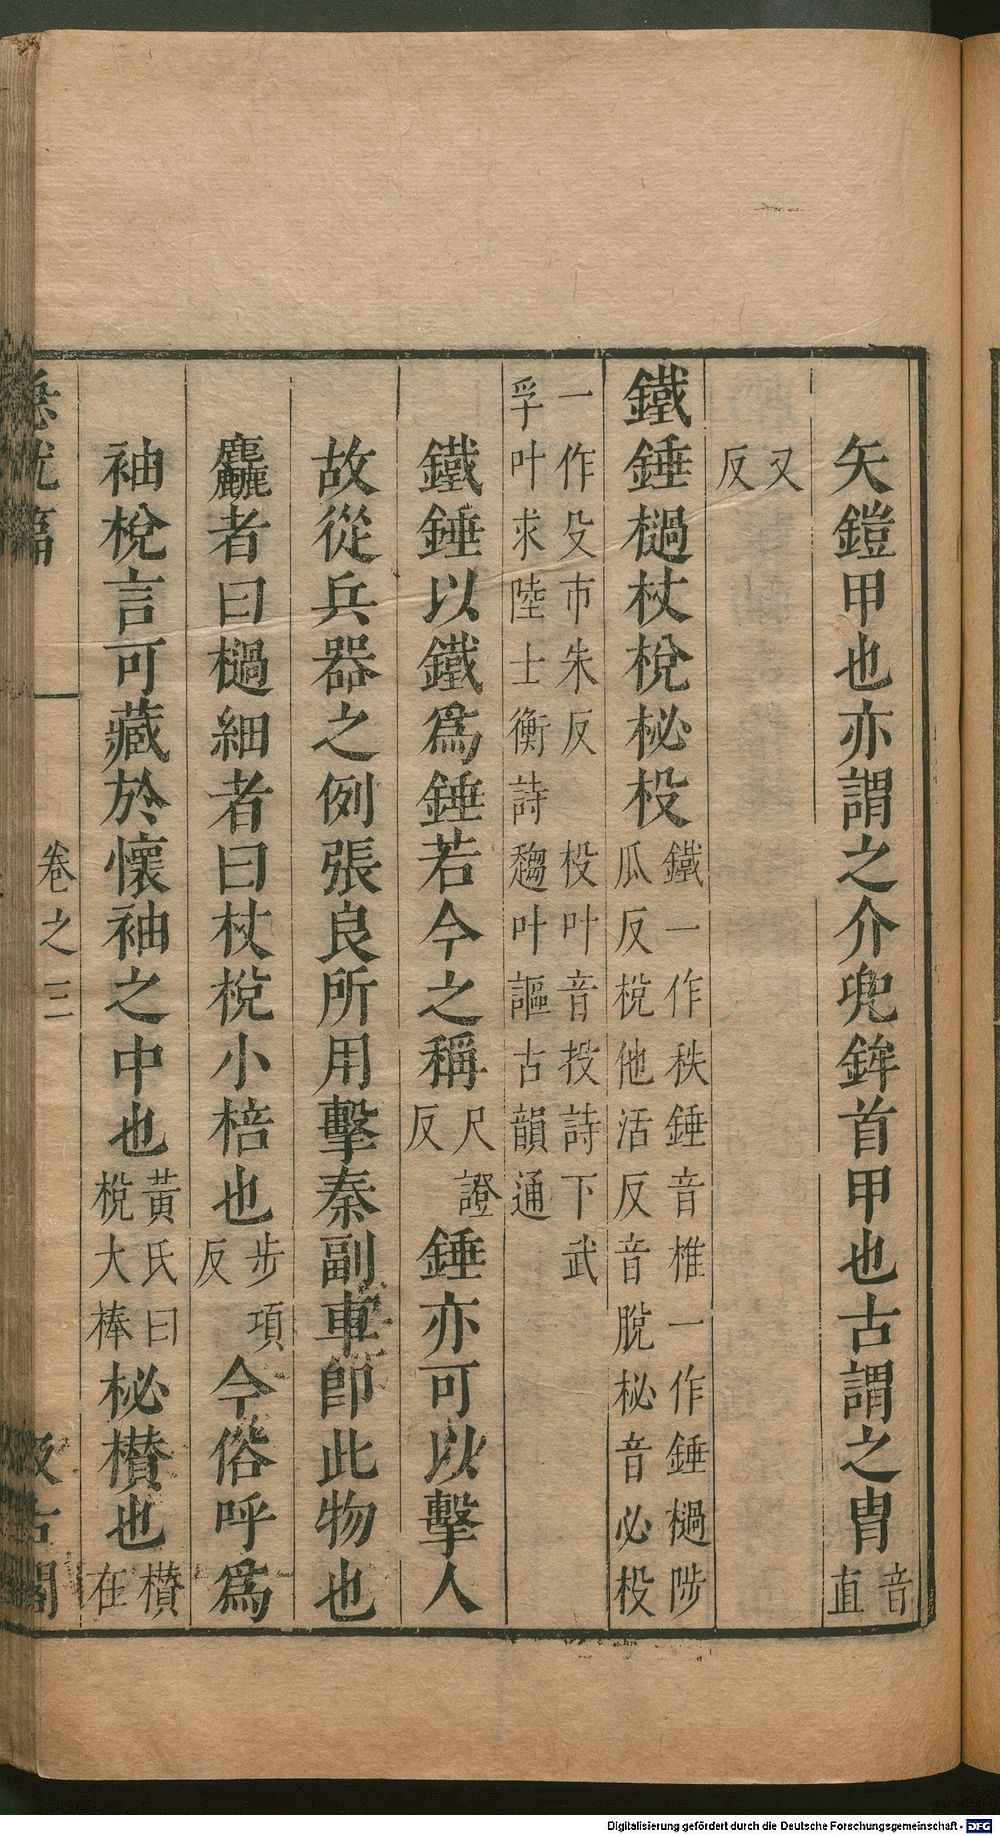 矢鎧甲也亦謂之介兜鉾首甲也古謂之冑音直
又反
鐵錘檛杖梲柲杸鐵一作秩錘音椎一作錘檛陟瓜反梲他活反音脫柲音必杸
一作殳市朱反 杸叶音投詩下武孚叶求陸士衡詩趨叶謳古韻通
鐵錘以鐵爲錘若今之稱尺證反錘亦可以擊人
故從兵器之例張良所用擊秦副車卽此物也
麤者曰檛細者曰杖梲小棓也步項反今俗呼爲
袖梲言可藏於懷袖之中也黃氏曰梲大棒柲欑也欑在
急就篇 卷之三 汲古閣
Digitalisierung gefördert durch die Deutsche Forschungsgemeinschaft - DFG